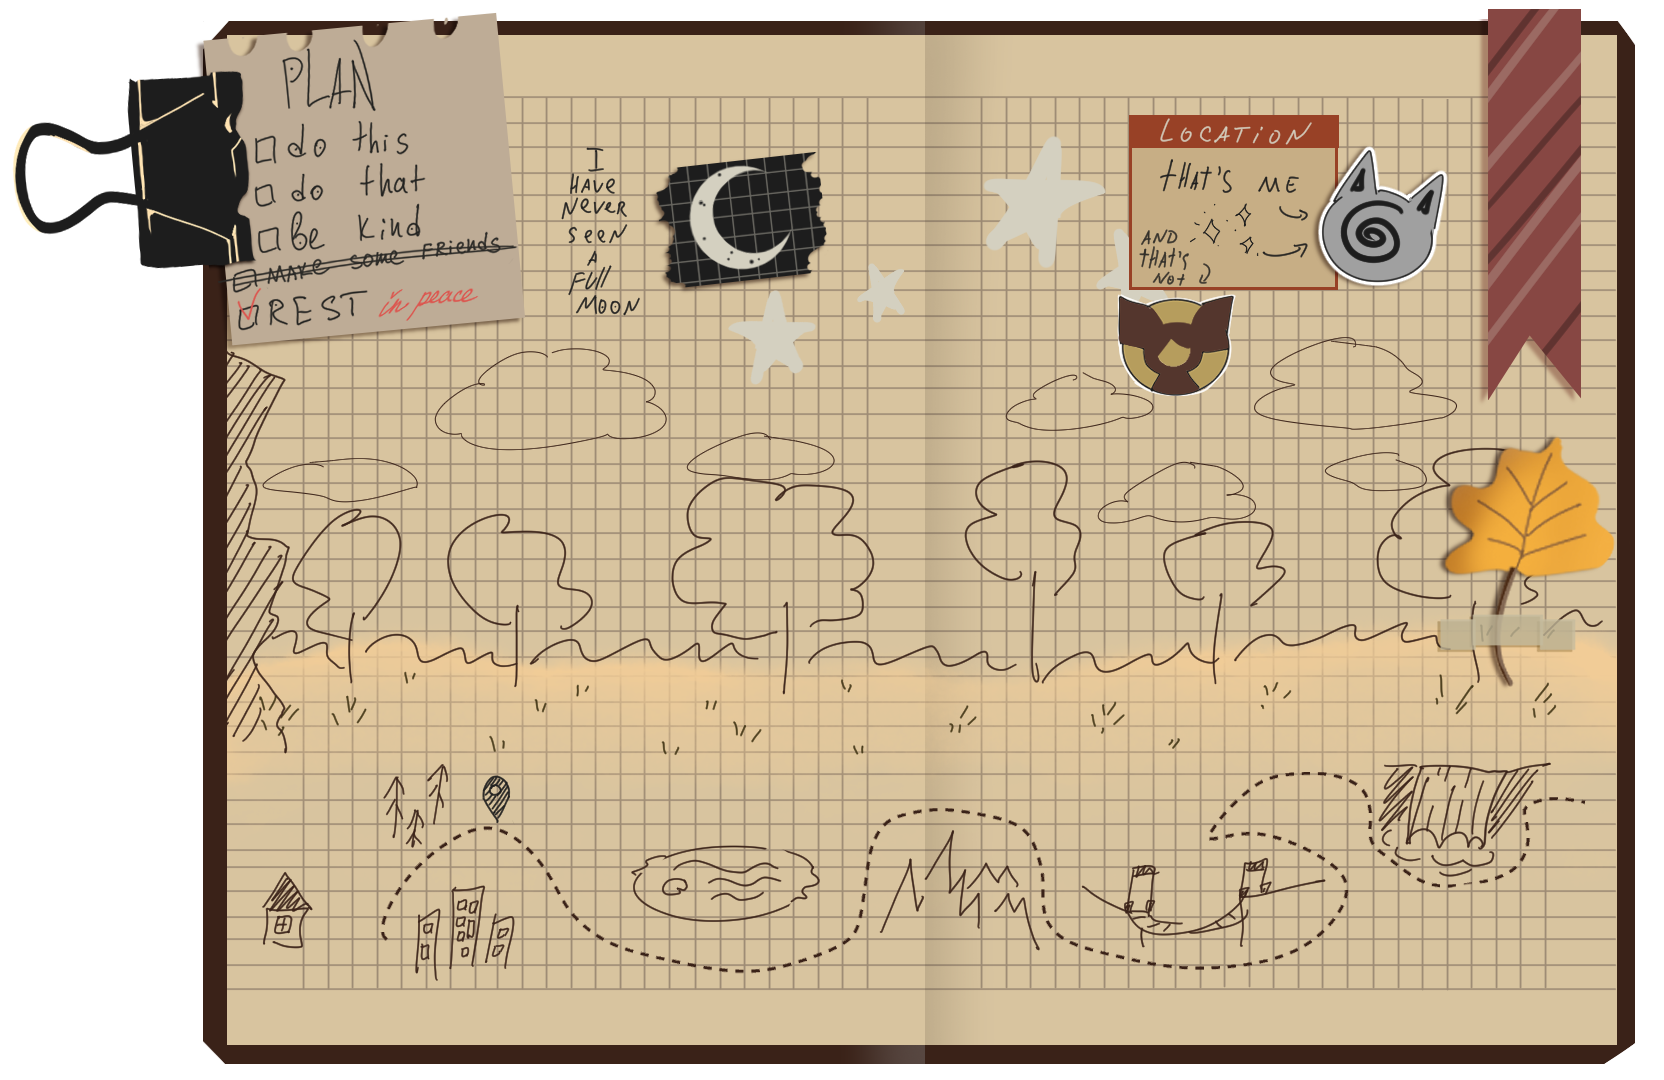 PLAN
do this
do that
Be kind
MAKE some FRiends
REST in peace
I
HAVe
Never
seeN
A
FUll
MOON
LOCATiON
tHAT'S ME
AND
tHAT'S
Not